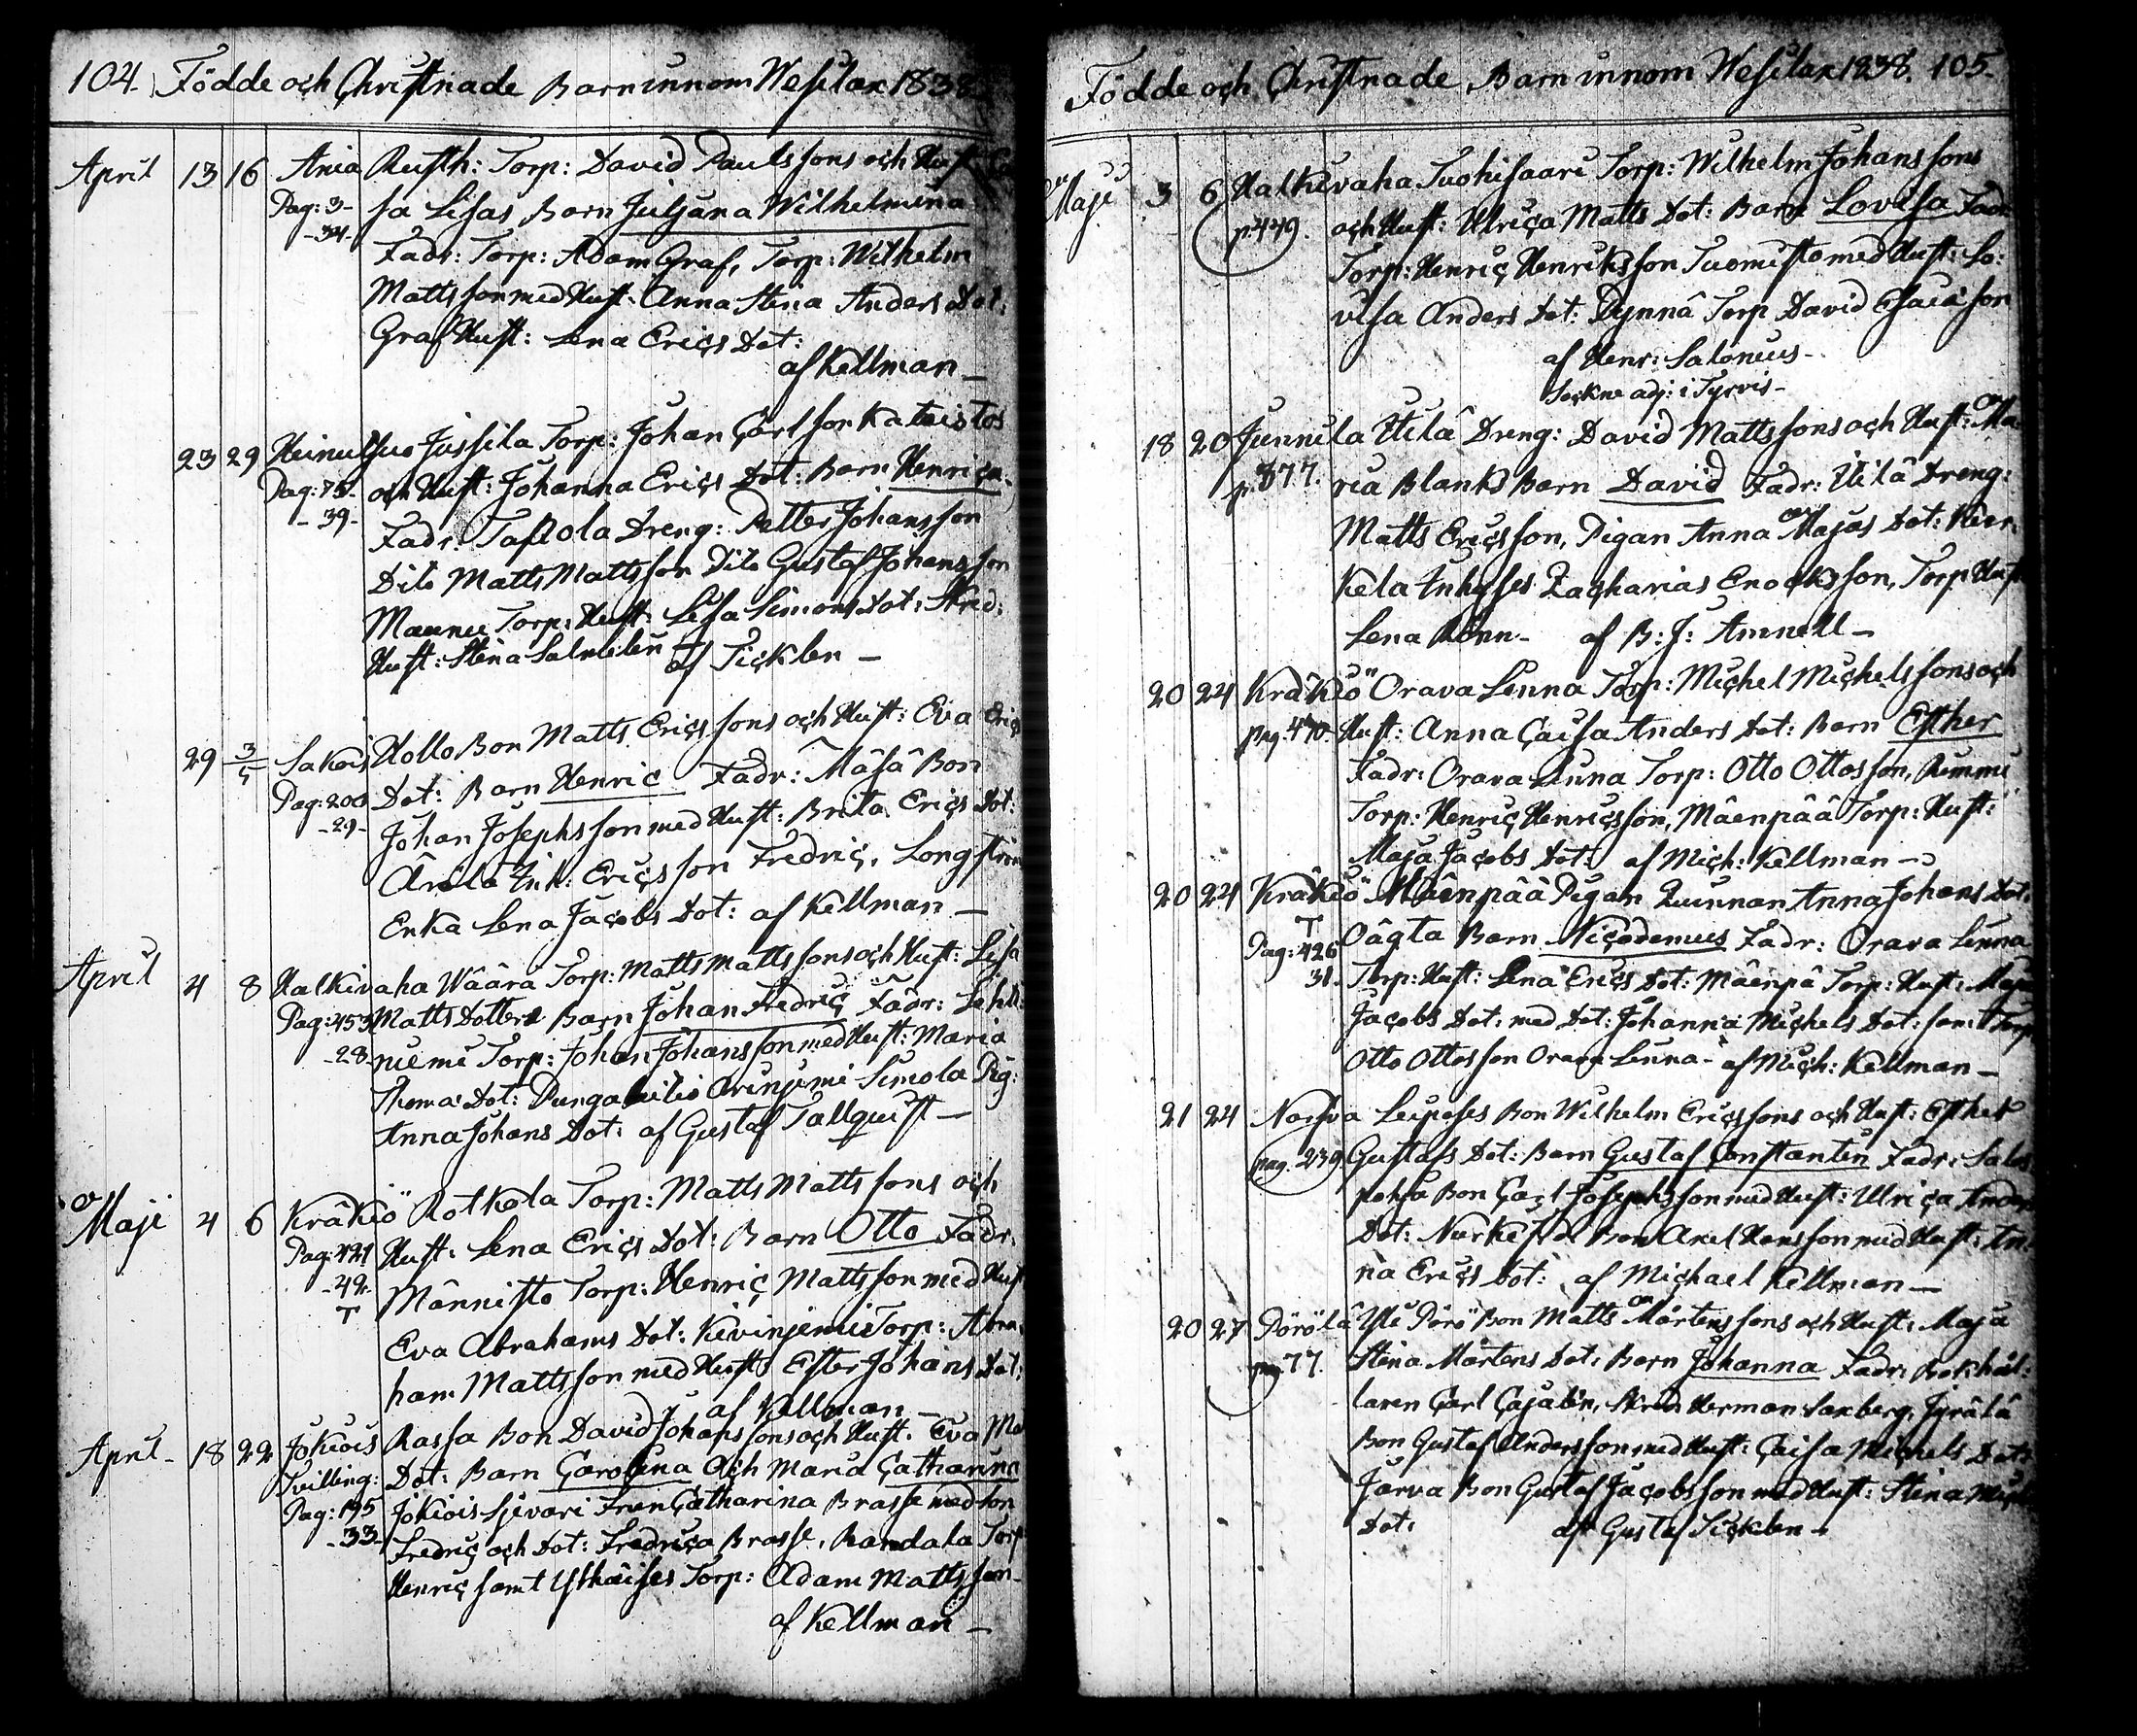 104. Födde och Christnade Barn innom Wesilax 1838
April 13 16 Ania Rusth: Torp: David Paulssons och Hust
Pag: 3- sa Lisas Barn Juljana Wilhelmina
-34- Fadr: Torp: Adam Graf, Torp: Wilhelm
Mattsson med Hust: Anna Stina Anders Dot:
Graf Hust: Lena Erics Dot:
af Kellman
23 29 Jussila Torp: Johan Carlson
Pag: 75- och Hust: Johanna Erics Dot: Barn Henrica
-39- Fadr: Dreng: Petter Johansson
Dito Matts Mattsson Dito Gustaf Johansson
Maunu Torp: Hust: Lisa Simons Dot: Skred:
Hust: Stina af Ticklen
29 3/5 Sakois Hollo Bon Matts Ericssons och Hust: Eva Erics
Pag: 200 Dot: Barn Henric Fadr: Mäsä Bon
-29- Johan Josephsson med Hust: Brita Erics Dot:
Inh: Ericsson Fredric,
Enka Lena Jacobs Dot: af Kellman
April 4 8 Halkivaha Wäärä Torp: Matts Mattssons och Hust: Lisa
Pag: 453 Matts Dotters Barn Johan Fredric Fadr: Lehti
-28- niemi Torp: Johan Johansson med Hust: Maria
Thomas Dot: Simola Pig:
Anna Johans Dot: af Gustaf Tallquist
Maji 4 6 Kräkiö Rotkola Torp: Matts Mattssons och
Pag: 421 Hust: Lena Erics Dot: Barn Otto Fadr:
-42- Männistö Torp: Henric Mattsson med Hust
T Eva Abrahams Dot: Kivinjemi Torp: Abra-
ham Mattsson med Hust: Ester Johans Dot:
af Kellman
April 18 22 Jokiois Rassa Bon David Johanssons och Hust: Eva
Tvilling: Dot: Barn Carolina Och Maria Catharina
Pag: 195 Jokiois Sjevari Frun Catharina Brasse med son
-33- Fredric och Dot: Fredrica Brasse, Randala Torp
Henric samt Torp: Adam Mattsson
af Kellman
Födde och Christnade Barn innom Wesilax 1838. 105.
Maji 3 6 Halkivaha Tuohisaari Torp: Wilhelm Johanssons
p. 449. och Hust: Ulrica Matts Dot: Barn Lovisa Fadr
Torp: Henric Henriksson Tuomisto med Hust: Lo:
visa Anders Dot: Pynnä Torp David Esaiasson
af Henr: Salonius
Sockne adj: i Tyrvis
18 20 Junnila Uilä Dreng: David Mattssons och Hust: Ma
p. 377. ria Blanks Barn David Fadr: Uilä Dreng:
Matts Ericsson, Pigan Anna Majas Dot:
kela Inhyses Zacharias Enocksson, Torp Hust
Lena Rönn af B: J: Amnell
20 24 Kräkiö Orava Linna Torp: Michel Michelssons och
pag. 470. Hust: Anna Caisa Anders Dot: Barn Esther
Fadr: Orava Linna Torp: Otto Ottosson, Rimmi
Torp: Henric Henricsson, Mäenpää Torp: Hust:
Maja Jacobs Dot: af Mich: Kellman
20 24 Kräkiö Mäenpää Pigan Quinnan Anna Johans Dot:
T
Pag: 426 Oägta Barn Nicodemus Fadr: Orava Linna
31. Torp: Hust: Lena Erics Dot: Mäenpä Torp: Hust: Maja
Jacobs Dot: med Dot: Johanna Michels Dot: samt Torp
Otto Ottosson Orava Linna af Mich: Kellman
21 24 Leiposes Bon Wilhelm Ericssons och Hust: Esther
pag. 239 Gustafs Dot: Barn Gustaf Constantin Fadr: Salo
pohja Bon Carl Josephsson med Hust: Ulrica Anders
Dot: Bon Axel Hansson med Hust: An-
na Erics Dot: af Michael Kellman
20 27 Pörölä Yli Pörö Bon Matts Mårtenssons och Hust: Maja
pag 77. Stina Mårtens Dot: Barn Johanna Fadr: Bokhål:
laren Carl Cajalén, Skred: Herman Saxberg, Jyrälä
Bon Gustaf Andersson med Hust: Caisa Michels Dot:
Järva Bon Gustaf Jacobsson med Hust: Stina Michels
Dot: af Gustaf Ticklen